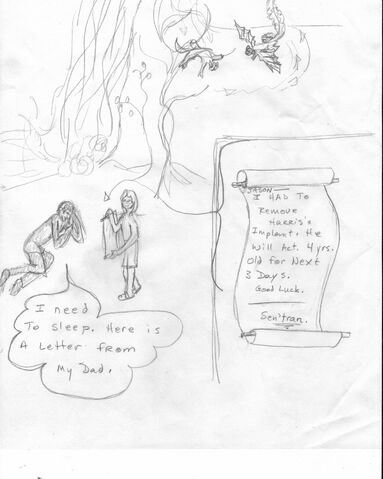 I need
To sleep. Here is
A Letter from
My Dad.
JASON—
I HAD TO
Remove
Harris's
Implant, He
Will Act 4 yrs.
Old for Next
3 Days.
Good Luck.
Sen'tran.